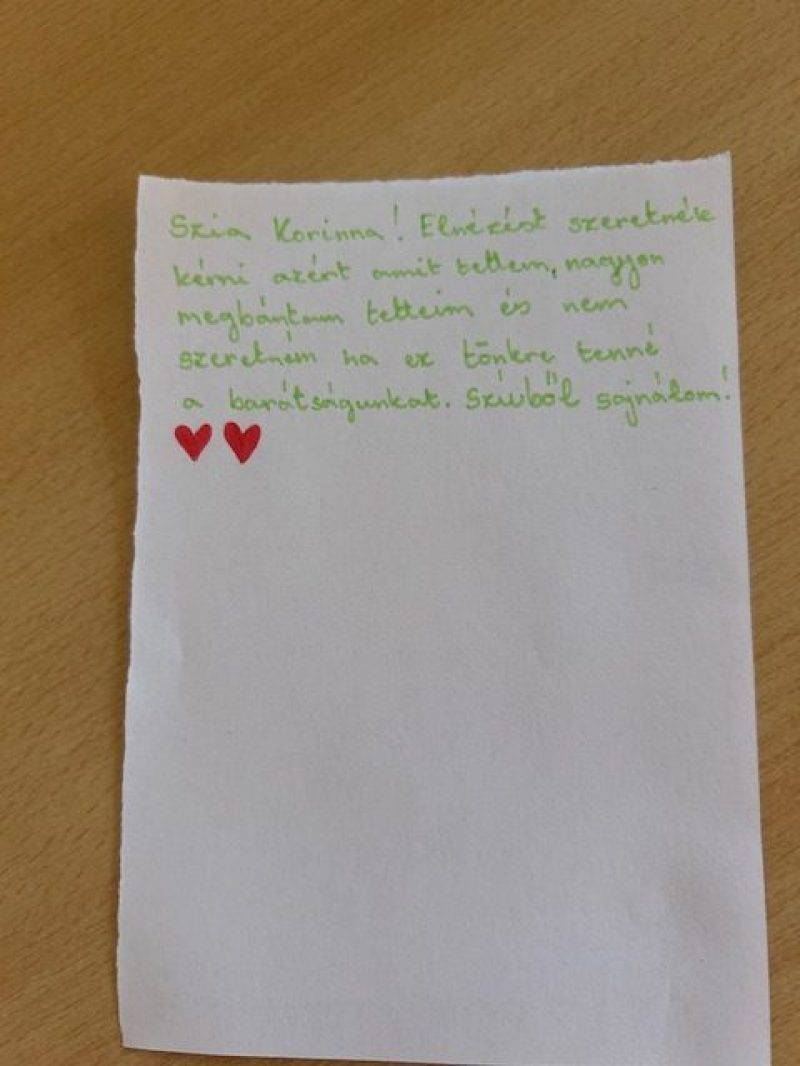 Szia Korinna! Elnézést szeretnék
kérni azért amit tettem, nagyon
megbántam tetteim és nem
szeretném ha ez tönkre tenné
a barátságunkat. Szívből sajnálom!